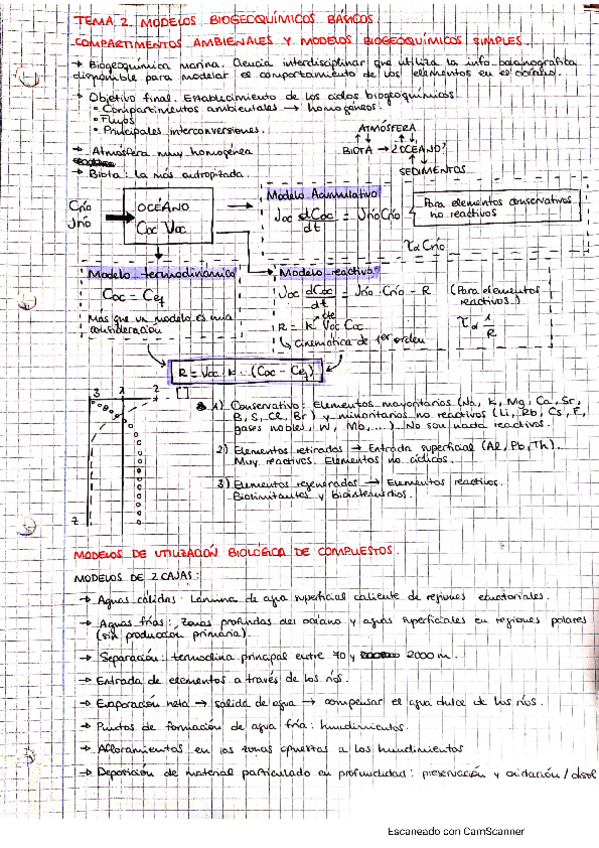 TEMA 2. MODELOS BIOGEOQUÍMICOS BÁSICOS.
COMPARTIMENTOS AMBIENALES Y MODELOS BIOGEOQUÍMICOS SIMPLES.
→ Biogeoquímica marina. Ciencia interdisciplinar que utiliza la info oceanográfica
disponible para modelar el comportamiento de los elementos en el océano.
→ Objetivo final. Establecimiento de los ciclos biogeoquímicos.
• Compartimentos ambientales → homogéneos.
• Flujos
• Principales interconversiones.
ATMÓSFERA
BIOTA → ¿OCEANO?
SEDIMENTOS
→ Atmósfera muy homogénea
→ Biota: la más
Crío
Jrío
OCÉANO
Coc Voc
Modelo Acumulativo
Voc dCoc/dt = Jrío Crío
Para elementos conservativos
no reactivos
τ α Crío
Modelo termodinámico
Coc = Ceq
Más que un modelo es una
consideración
Modelo reactivo
Voc dCoc/dt = Jrío · Crío - R
(Para elementos
reactivos.)
R = K Voc Coc
cte
↳ cinemática de 1er orden
τ α 1/R
R = Voc K · (Coc - Ceq)
3 1 2
z
1) Conservativo: Elementos mayoritarios (Na, K, Mg, Ca, Sr,
B, S, Cl, Br) y minoritarios no reactivos (Li, Rb, Cs, F,
gases nobles, W, Mb, ...) No son nada reactivos.
2) Elementos retirados → Entrada superficial (Al, Pb, Th).
Muy reactivos. Elementos no cíclicos.
3) Elementos regenerados → Elementos reactivos.
Biolimitantes y
MODELOS DE UTILIZACIÓN BIOLÓGICA DE COMPUESTOS.
MODELOS DE 2 CAJAS:
→ Aguas cálidas. Lámina de agua superficial caliente de regiones ecuatoriales.
→ Aguas frías: zonas profundas del océano y aguas superficiales en regiones polares
(sin producción primaria).
→ Separación: termoclina principal entre 70 y 2000 m.
→ Entrada de elementos a través de los ríos.
→ Evaporación neta → salida de agua → compensar el agua dulce de los ríos.
→ Puntos de formación de agua fría: hundimientos.
→ Afloramientos en las zonas opuestas a los hundimientos
→ Deposición de material particulado en profundidad: preservación y oxidación/disol
Escaneado con CamScanner